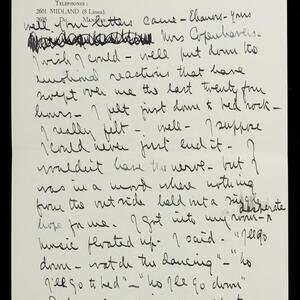 TELEPHONES:
2601 MIDLAND (8 Lines).
well - your letters came - Eleanor's - yours
Mrs Copenhaver's.
I wish I could - well put down the
emotional reactions that have
swept over me the last twenty four
hours - I felt just down to bed rock -
I really felt - well - I suppose
I could never just end it - I
wouldn't have the nerve - but I
was in a mood where nothing
from the outside held out a single
hope for me. I got into my room - desperate
music floated up - I said - "I'll go
down - watch the dancing" - "no
I'll go to bed" - "no I'll go down"